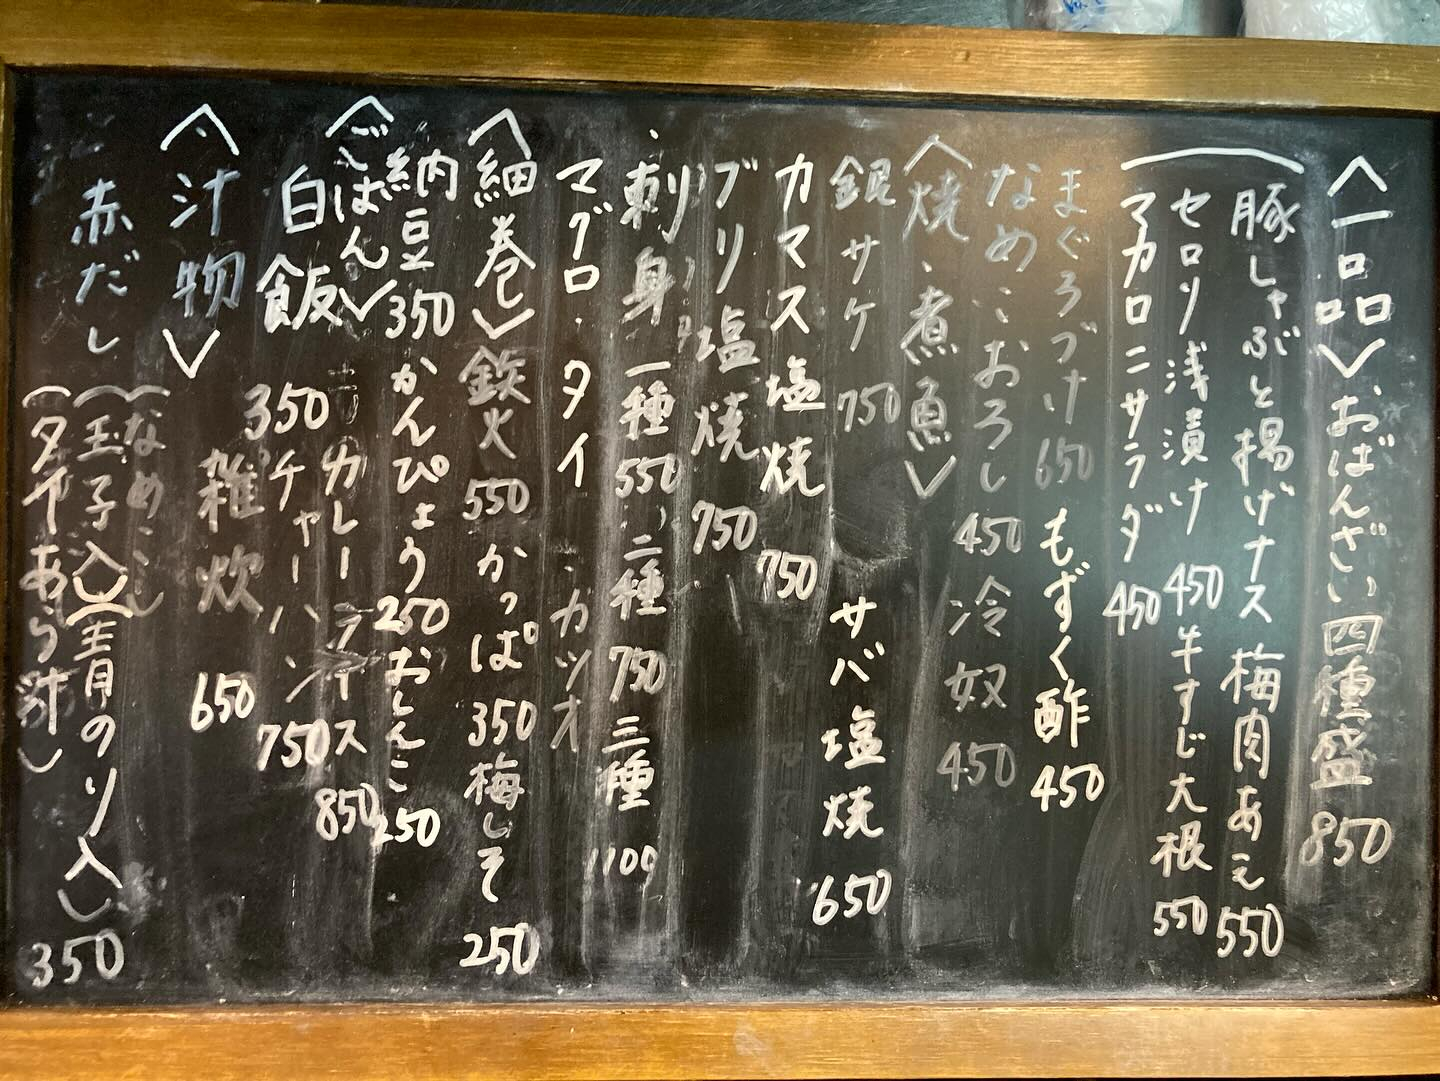 〈一品〉おばんざい四種盛 850
豚しゃぶと揚げナス梅肉あえ 550
セロリ浅漬け 450 牛すじ大根 550
マカロニサラダ 450
まぐろづけ 650 もずく酢 450
なめこおろし 450 冷奴 450
〈焼・煮魚〉
銀サケ 750 サバ塩焼 650
カマス塩焼 750
ブリ塩焼 750
・刺身 一種550 二種750 三種1100
マグロ・タイ・カツオ
〈細巻〉鉄火 550 かっぱ 350 梅しそ 250
納豆 350 かんぴょう 250 おしんこ 250
〈ごはん〉カレーライス 850
白飯 350 チャーハン 750
雑炊 650
〈汁物〉
赤だし(なめこ)(玉子入)(青のり入)(タイあら汁) 350